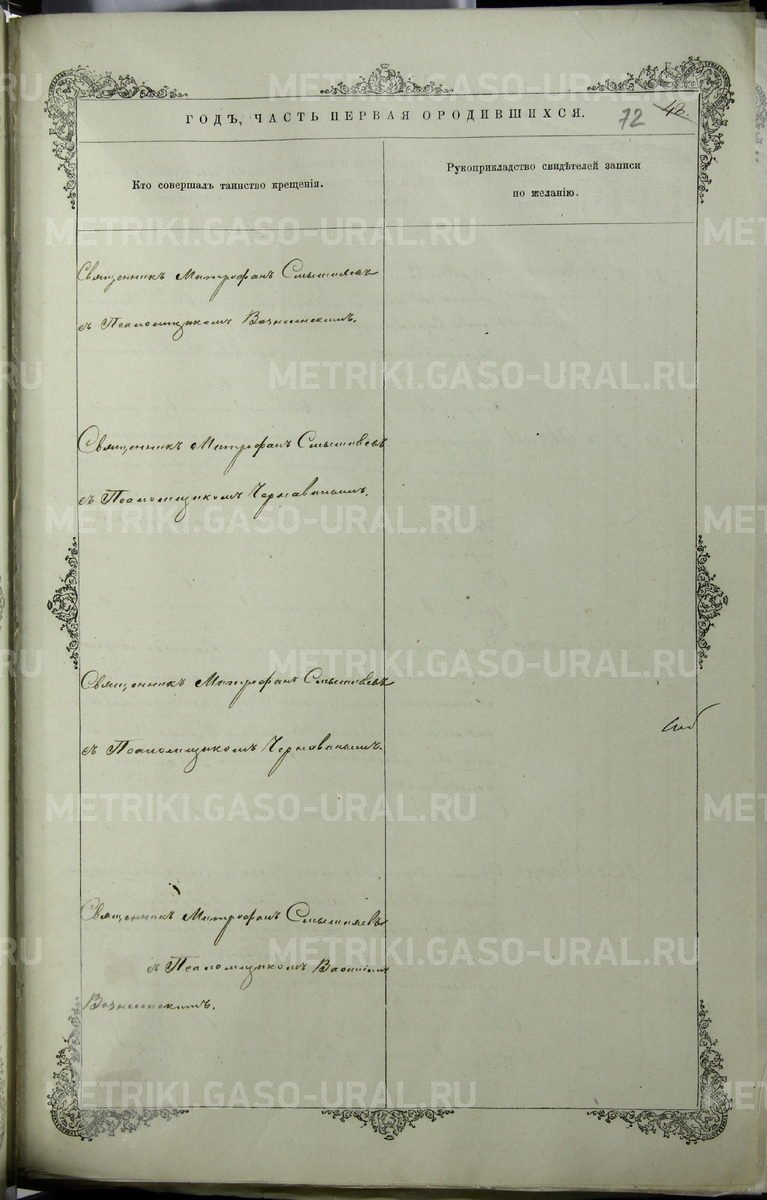 ГОДЪ, ЧАСТЬ ПЕРВАЯ ОРОДИВШИХСЯ.
72 42.
Кто совершалъ таинство крещенія.
Рукоприкладство свидѣтелей записи
по желанію.
Священникъ Митрофанъ Смышляевъ
съ Псаломщикомъ Вознесенскимъ.
Священникъ Митрофанъ Смышляевъ
съ Псаломщикомъ Чернавинымъ.
Священникъ Митрофанъ Смышляевъ
съ Псаломщикомъ Чернавинымъ.
Священникъ Митрофанъ Смышляевъ
съ Псаломщикомъ
Вознесенскимъ.
METRIKI.GASO-URAL.RU